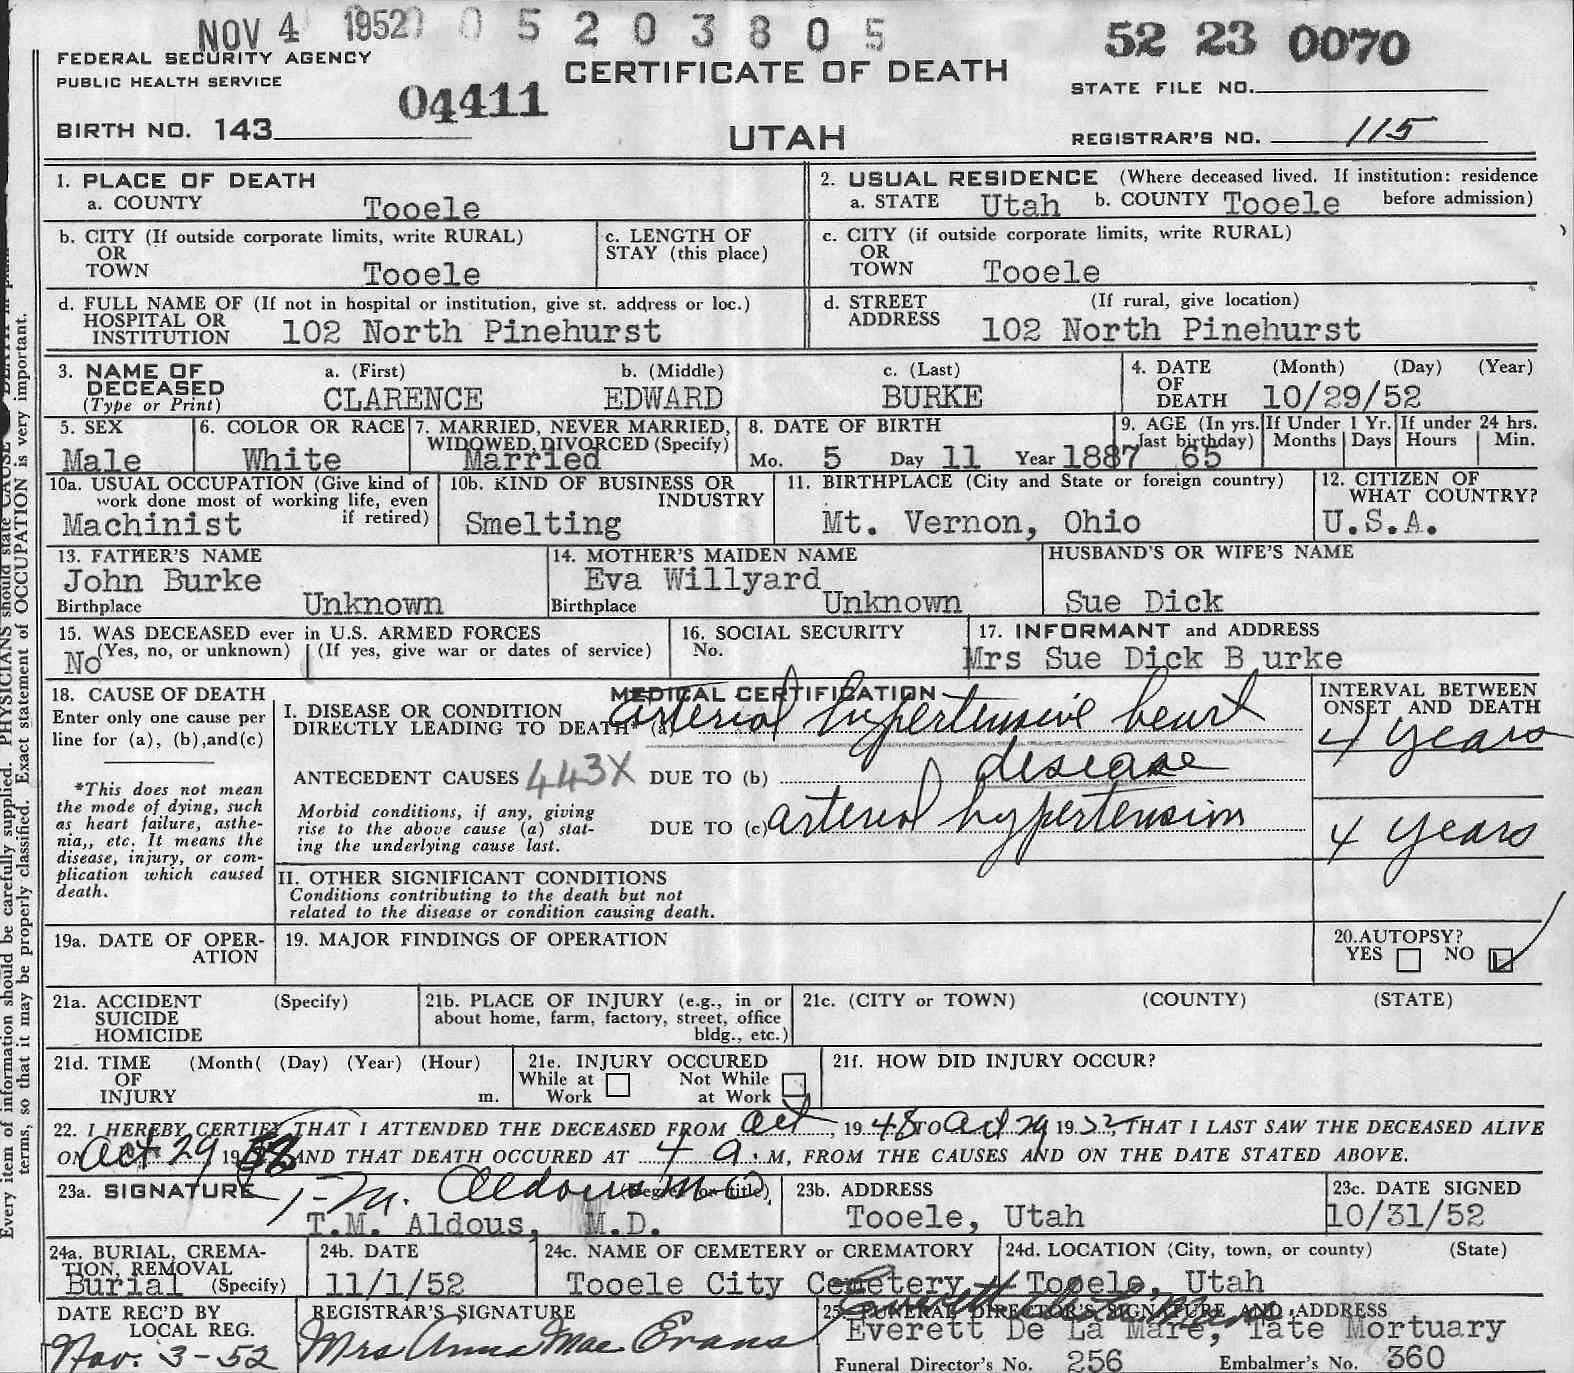 NOV 4 1952 0 5 2 0 3 8 0 5
52 23 0070
FEDERAL SECURITY AGENCY
PUBLIC HEALTH SERVICE
CERTIFICATE OF DEATH
STATE FILE NO.
04411
BIRTH NO. 143
UTAH
REGISTRAR'S NO. 115
1. PLACE OF DEATH
a. COUNTY Tooele
2. USUAL RESIDENCE (Where deceased lived. If institution: residence
a. STATE Utah b. COUNTY Tooele before admission)
b. CITY (If outside corporate limits, write RURAL)
OR
TOWN Tooele
c. LENGTH OF
STAY (this place)
c. CITY (if outside corporate limits, write RURAL)
OR
TOWN Tooele
d. FULL NAME OF (If not in hospital or institution, give st. address or loc.)
HOSPITAL OR
INSTITUTION 102 North Pinehurst
d. STREET (If rural, give location)
ADDRESS 102 North Pinehurst
3. NAME OF a. (First) b. (Middle) c. (Last)
DECEASED
(Type or Print) CLARENCE EDWARD BURKE
4. DATE (Month) (Day) (Year)
OF
DEATH 10/29/52
5. SEX
Male
6. COLOR OR RACE
White
7. MARRIED, NEVER MARRIED,
WIDOWED, DIVORCED (Specify)
Married
8. DATE OF BIRTH
Mo. 5 Day 11 Year 1887
9. AGE (In yrs.
last birthday)
65
If Under 1 Yr.
Months Days
If under 24 hrs.
Hours Min.
10a. USUAL OCCUPATION (Give kind of
work done most of working life, even
if retired)
Machinist
10b. KIND OF BUSINESS OR
INDUSTRY
Smelting
11. BIRTHPLACE (City and State or foreign country)
Mt. Vernon, Ohio
12. CITIZEN OF
WHAT COUNTRY?
U.S.A.
13. FATHER'S NAME
John Burke
Birthplace Unknown
14. MOTHER'S MAIDEN NAME
Eva Willyard
Birthplace Unknown
HUSBAND'S OR WIFE'S NAME
Sue Dick
15. WAS DECEASED ever in U.S. ARMED FORCES
(Yes, no, or unknown) (If yes, give war or dates of service)
No
16. SOCIAL SECURITY
No.
17. INFORMANT and ADDRESS
Mrs Sue Dick B urke
18. CAUSE OF DEATH
Enter only one cause per
line for (a), (b),and(c)
*This does not mean
the mode of dying, such
as heart failure, asthe-
nia,, etc. It means the
disease, injury, or com-
plication which caused
death.
MEDICAL CERTIFICATION
I. DISEASE OR CONDITION
DIRECTLY LEADING TO DEATH* (a) arterial hypertensive heart
ANTECEDENT CAUSES 443X DUE TO (b) disease
Morbid conditions, if any, giving
rise to the above cause (a) stat-
ing the underlying cause last.
DUE TO (c) arterial hypertension
INTERVAL BETWEEN
ONSET AND DEATH
4 years
4 years
II. OTHER SIGNIFICANT CONDITIONS
Conditions contributing to the death but not
related to the disease or condition causing death.
19a. DATE OF OPER-
ATION
19. MAJOR FINDINGS OF OPERATION
20.AUTOPSY?
YES NO
21a. ACCIDENT (Specify)
SUICIDE
HOMICIDE
21b. PLACE OF INJURY (e.g., in or
about home, farm, factory, street, office
bldg., etc.)
21c. (CITY or TOWN) (COUNTY) (STATE)
21d. TIME (Month( (Day) (Year) (Hour)
OF
INJURY m.
21e. INJURY OCCURED
While at Not While
Work at Work
21f. HOW DID INJURY OCCUR?
22. I HEREBY CERTIFY THAT I ATTENDED THE DECEASED FROM Oct, 1948 TO Oct 29 1952, THAT I LAST SAW THE DECEASED ALIVE
ON Oct 29 1952 AND THAT DEATH OCCURED AT 4 a. M, FROM THE CAUSES AND ON THE DATE STATED ABOVE.
23a. SIGNATURE T. M. Aldous MD (Degree or title)
T.M. Aldous, M.D.
23b. ADDRESS
Tooele, Utah
23c. DATE SIGNED
10/31/52
24a. BURIAL, CREMA-
TION, REMOVAL
Burial (Specify)
24b. DATE
11/1/52
24c. NAME OF CEMETERY or CREMATORY
Tooele City Cemetery
24d. LOCATION (City, town, or county) (State)
Tooele, Utah
DATE REC'D BY
LOCAL REG.
Nov. 3-52
REGISTRAR'S SIGNATURE
Mrs Anna Mae Evans
25. FUNERAL DIRECTOR'S SIGNATURE AND ADDRESS
Everett De La Mare
Everett De La Mare, Tate Mortuary
Funeral Director's No. 256 Embalmer's No. 360
Every item of information should be carefully supplied. PHYSICIANS should state CAUSE OF DEATH in plain
terms, so that it may be properly classified. Exact statement of OCCUPATION is very important.